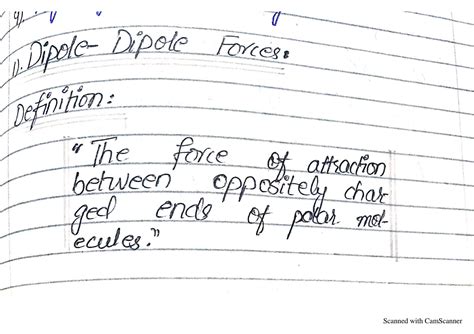 1). Dipole-Dipole Forces:
Definition:
"The force of attraction
between oppositely char
ged ends of polar mol-
ecules."
Scanned with CamScanner